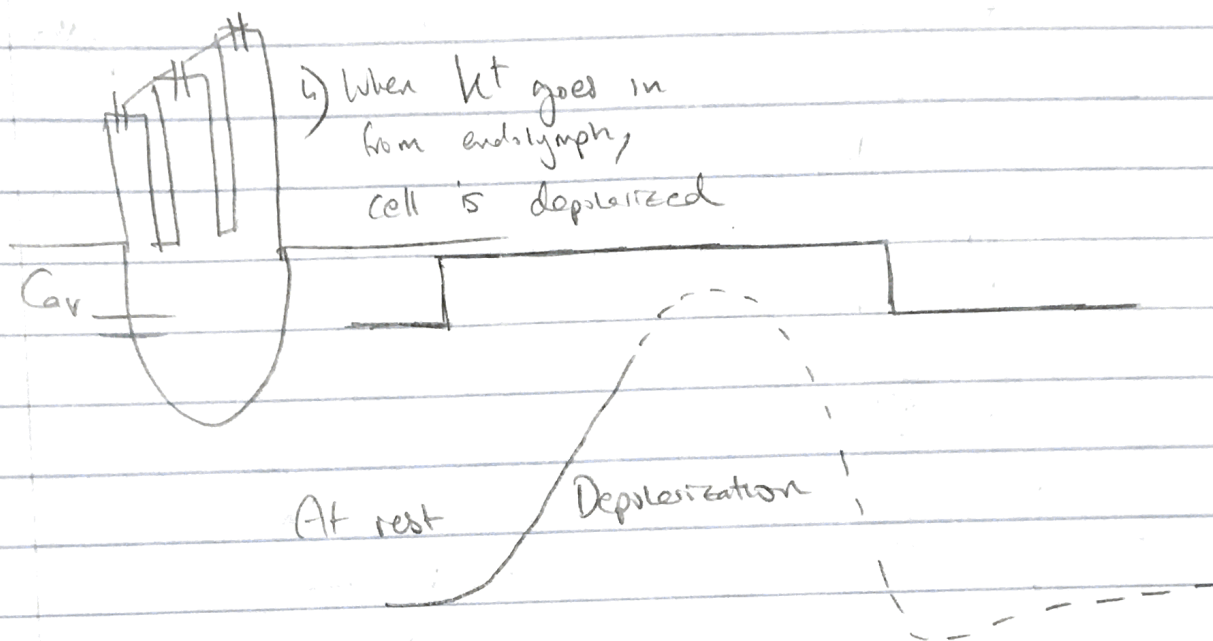 4) When K+ goes in
from endolymph,
cell is depolarized
Cav
At rest
Depolarization